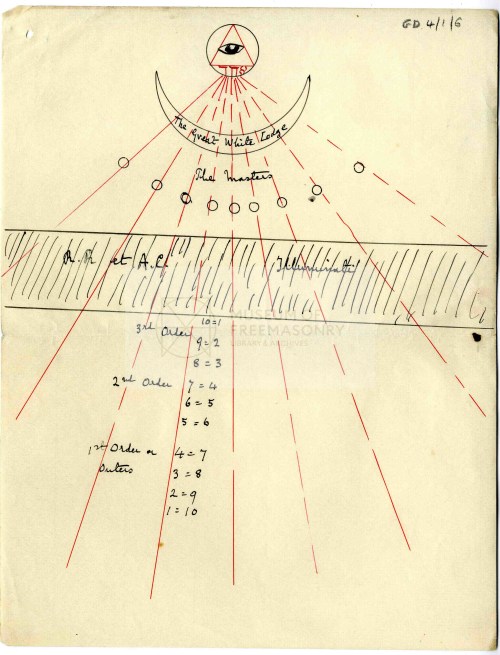 GD 4/1/6
The Great White Lodge
The Masters
R.R et A.C.
Illuminati
MUSEUM OF
FREEMASONRY
LIBRARY & ARCHIVES
3rd Order
10=1
9=2
8=3
2nd Order 7=4
6=5
5=6
1st Order or 4=7
Outers 3=8
2=9
1=10